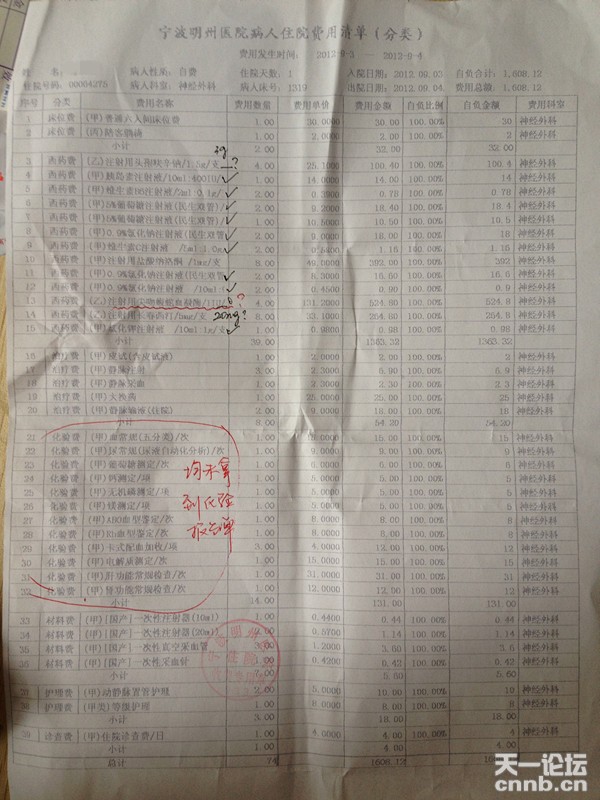 宁波明州医院病人住院费用清单(分类)
费用发生时间: 2012-9-3 — 2012-9-4
姓 名: 病人性质:自费 住院天数:1 入院日期:2012.09.03 自负合计:1,608.12
住院号码:00064275 病人科室:神经外科 病人床号:1319 出院日期:2012.09.04 费用总额:1,608.12
序号 分类 费用名称 费用数量 费用单价 费用金额 自负比例 自负金额 费用科室
1 床位费 (甲)普通六人间床位费 1.00 30.0000 30.00 100.00% 30 神经外科
2 床位费 (丙)陪客躺椅 1.00 2.0000 2.00 100.00% 2 神经外科
小计 2.00 32.00 32.00
3 西药费 4.00 25.1000 100.40 100.00% 100.4 神经外科
4 西药费 (甲)胰岛素注射液/10ml:400IU/ 1.00 14.0000 14.00 100.00% 14 神经外科
5 西药费 (甲)维生素B6注射液 2.00 0.3900 0.78 100.00% 0.78 神经外科
6 西药费 (甲)5%葡萄糖注射液(民生双管) 2.00 9.2000 18.40 100.00% 18.4 神经外科
7 西药费 (甲)5%葡萄糖注射液(民生双管) 1.00 10.5000 10.50 100.00% 10.5 神经外科
8 西药费 (甲)0.9%氯化钠注射液(民生双管 2.00 9.0000 18.00 100.00% 18 神经外科
9 西药费 (甲)维生素C注射液 2.00 1.16 100.00% 1.16 神经外科
10 西药费 8.00 49.0000 392.00 100.00% 392 神经外科
11 西药费 (甲)0.9%氯化钠注射液(民生双管 2.00 8.3000 16.60 100.00% 16.6 神经外科
12 西药费 (甲)0.9%氯化钠注射液 /10ml 2.00 0.4500 0.90 100.00% 0.90 神经外科
13 西药费 4.00 131.2000 524.80 100.00% 524.8 神经外科
14 西药费 8.00 33.1000 264.80 100.00% 264.8 神经外科
15 西药费 (甲)氯化钾注射液 /10ml:1g/支 1.00 0.9800 0.98 100.00% 0.98 神经外科
小计 39.00 1363.32 1363.32
16 治疗费 1.00 2.0000 2.00 100.00% 2 神经外科
17 治疗费 (甲)静脉注射 3.00 5.90 100.00% 5.9 神经外科
18 治疗费 (甲)静脉采血 1.00 2.3000 2.30 100.00% 2.3 神经外科
19 治疗费 (甲)大换药 1.00 26.0000 26.00 100.00% 26 神经外科
20 治疗费 (甲)静脉输液(住院) 2.00 18.00 100.00% 18 神经外科
小计 8.00 54.20 54.20
21 化验费 (甲)血常规(五分类)/次 1.00 15.0000 15.00 100.00% 15 神经外科
22 化验费 (甲)尿常规(尿液自动化分析)/次 1.00 100.00% 神经外科
23 化验费 (甲)葡萄糖测定/次 1.00 100.00% 神经外科
24 化验费 (甲)钙测定/项 1.00 5.0000 5.00 100.00% 5 神经外科
25 化验费 (甲)无机磷测定/项 1.00 5.0000 5.00 100.00% 5 神经外科
26 化验费 (甲)镁测定/项 1.00 5.0000 5.00 100.00% 5 神经外科
27 化验费 (甲)ABO血型鉴定/次 1.00 8.0000 8.00 100.00% 8 神经外科
28 化验费 (甲)Rh血型鉴定/次 1.00 8.0000 8.00 100.00% 8 神经外科
29 化验费 (甲)卡式配血加收/项 3.00 4.0000 12.00 100.00% 12 神经外科
30 化验费 (甲)电解质测定/次 1.00 15.0000 15.00 100.00% 15 神经外科
31 化验费 (甲)肝功能常规检查/次 1.00 31.0000 31.00 100.00% 31 神经外科
32 化验费 (甲)肾功能常规检查/次 1.00 12.0000 12.00 100.00% 12 神经外科
小计 14.00 131.00 131.00
33 材料费 (甲)[国产]一次性注射器(10ml) 1.00 0.4400 0.44 100.00% 0.44 神经外科
34 材料费 (甲)[国产]一次性注射器(20ml) 2.00 0.5700 1.14 100.00% 1.14 神经外科
35 材料费 (甲)[国产]一次性真空采血管 3.00 1.2000 3.60 100.00% 3.6 神经外科
36 材料费 (甲)[国产]一次性采血针 1.00 0.4200 0.42 100.00% 0.42 神经外科
小计 7.00 5.60 5.60
37 护理费 (甲)动静脉置管护理 2.00 5.0000 10.00 100.00% 10 神经外科
38 护理费 (甲类)等级护理 1.00 8.0000 8.00 100.00% 8 神经外科
小计 3.00 18.00 18.00
39 诊查费 (甲)住院诊查费/日 1.00 4.0000 4.00 100.00% 4 神经外科
小计 1.00 4.00 4.00
总计 74 1608.12
3g
?
?
20mg?
均未拿
到化验
报告单
天一论坛
cnnb.cn